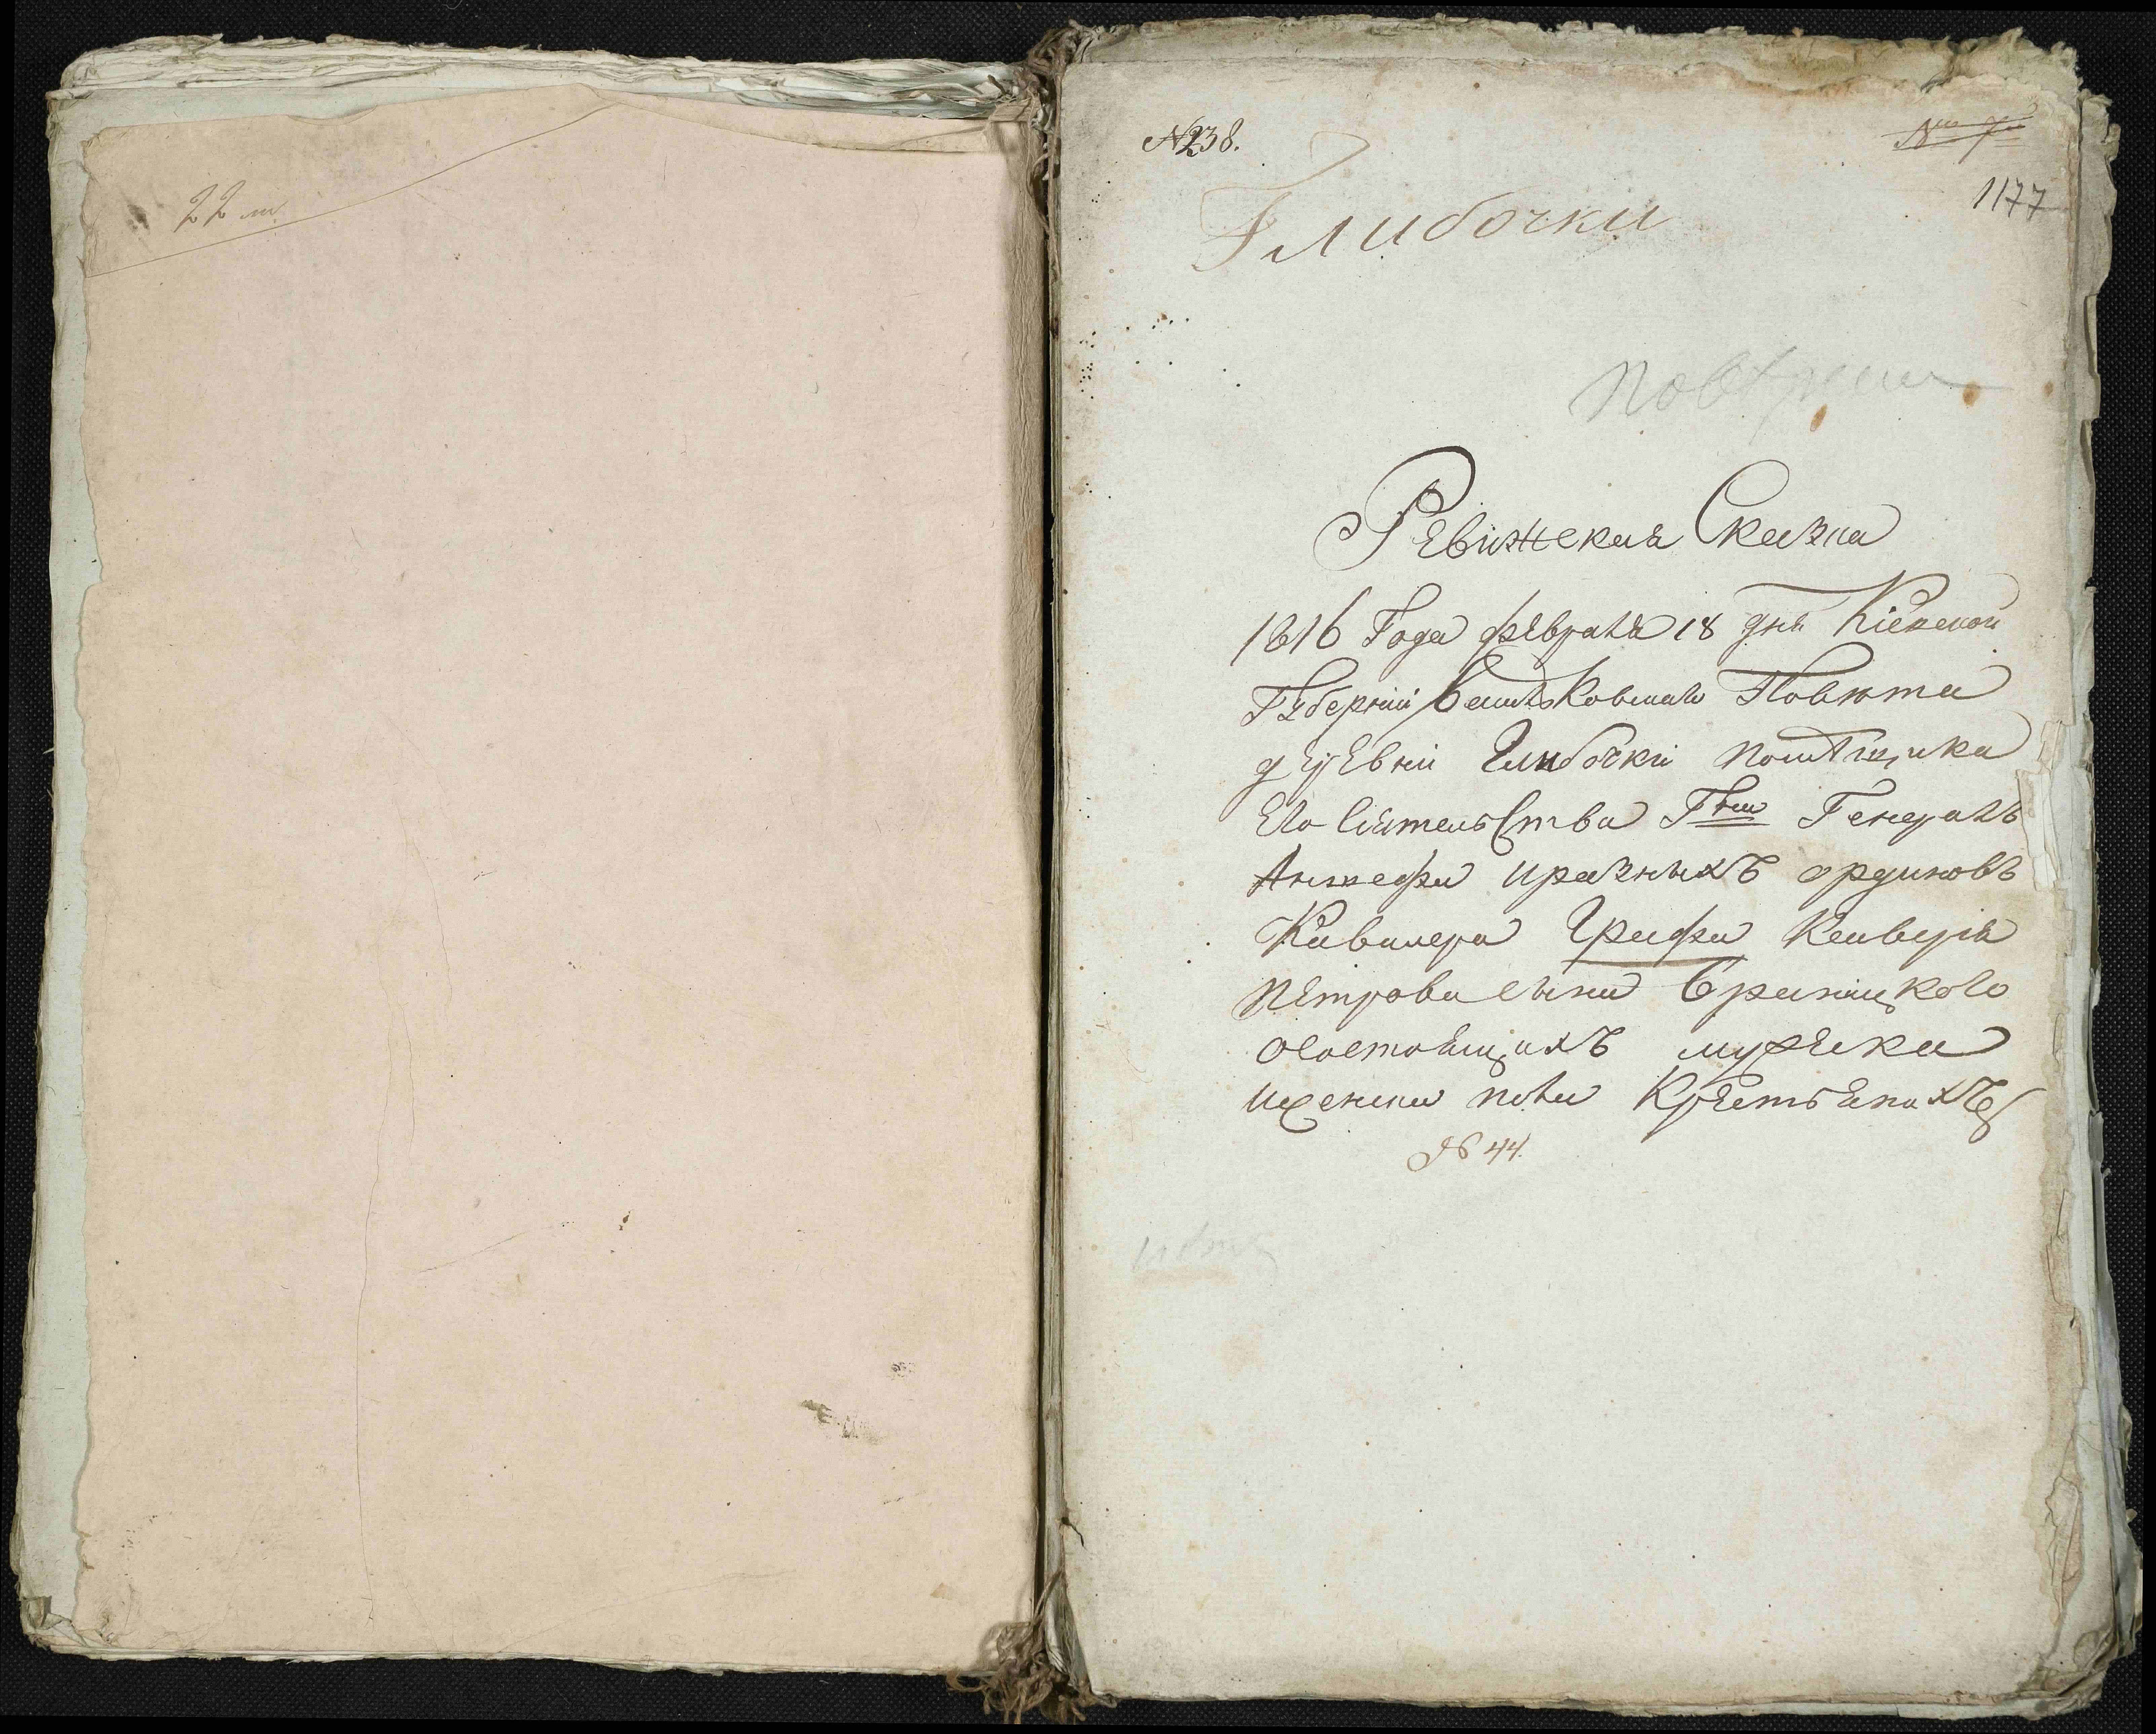 22 ли
№ 238.
1177
Глибочки
Ревижская Сказка
1816 Года февраля 18 дня Кіевской
Губерніи Василковскаго Повѣта
деревни Глибочки помѣщика
Его Сіятельства Генералъ
Аншефа иразныхъ ординовъ
Кавалера Графа Ксаверія
Петрова сына Браницкого
осостоящихъ мужеска
иженска пола Крестьянахъ
№ 44.